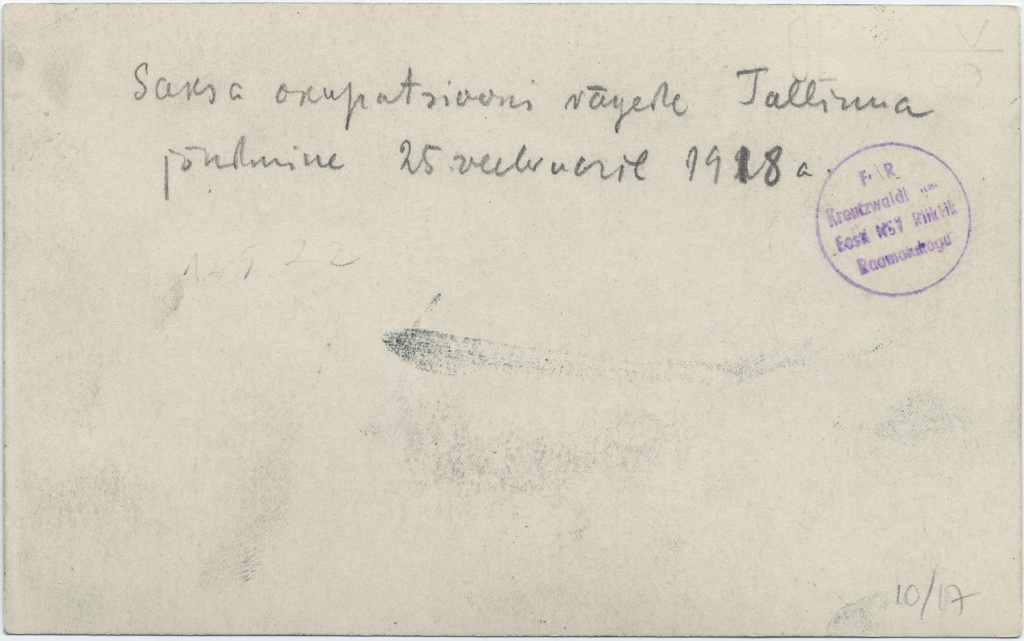 Saksa okupatsiooni vägede Tallinna
jõudmine 25. veebruaril 1918 a.
F. R.
Kreutzwaldi nim.
Eesti NSV Riiklik
Raamatukogu
10/17